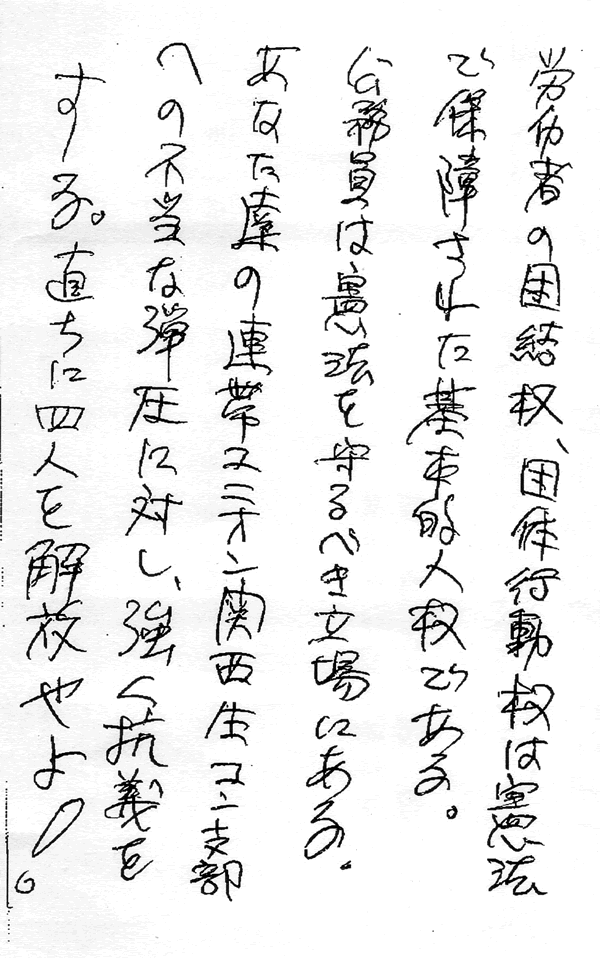 労仂者の団結权、団体行動权は憲法
で保障された基本的人权である。
公務員は憲法を守るべき立場にある。
あなた達の連帯ユニオン関西生コン支部
への不当な弾圧に対し、強く抗義を
する。直ちに四人を解放せよ！